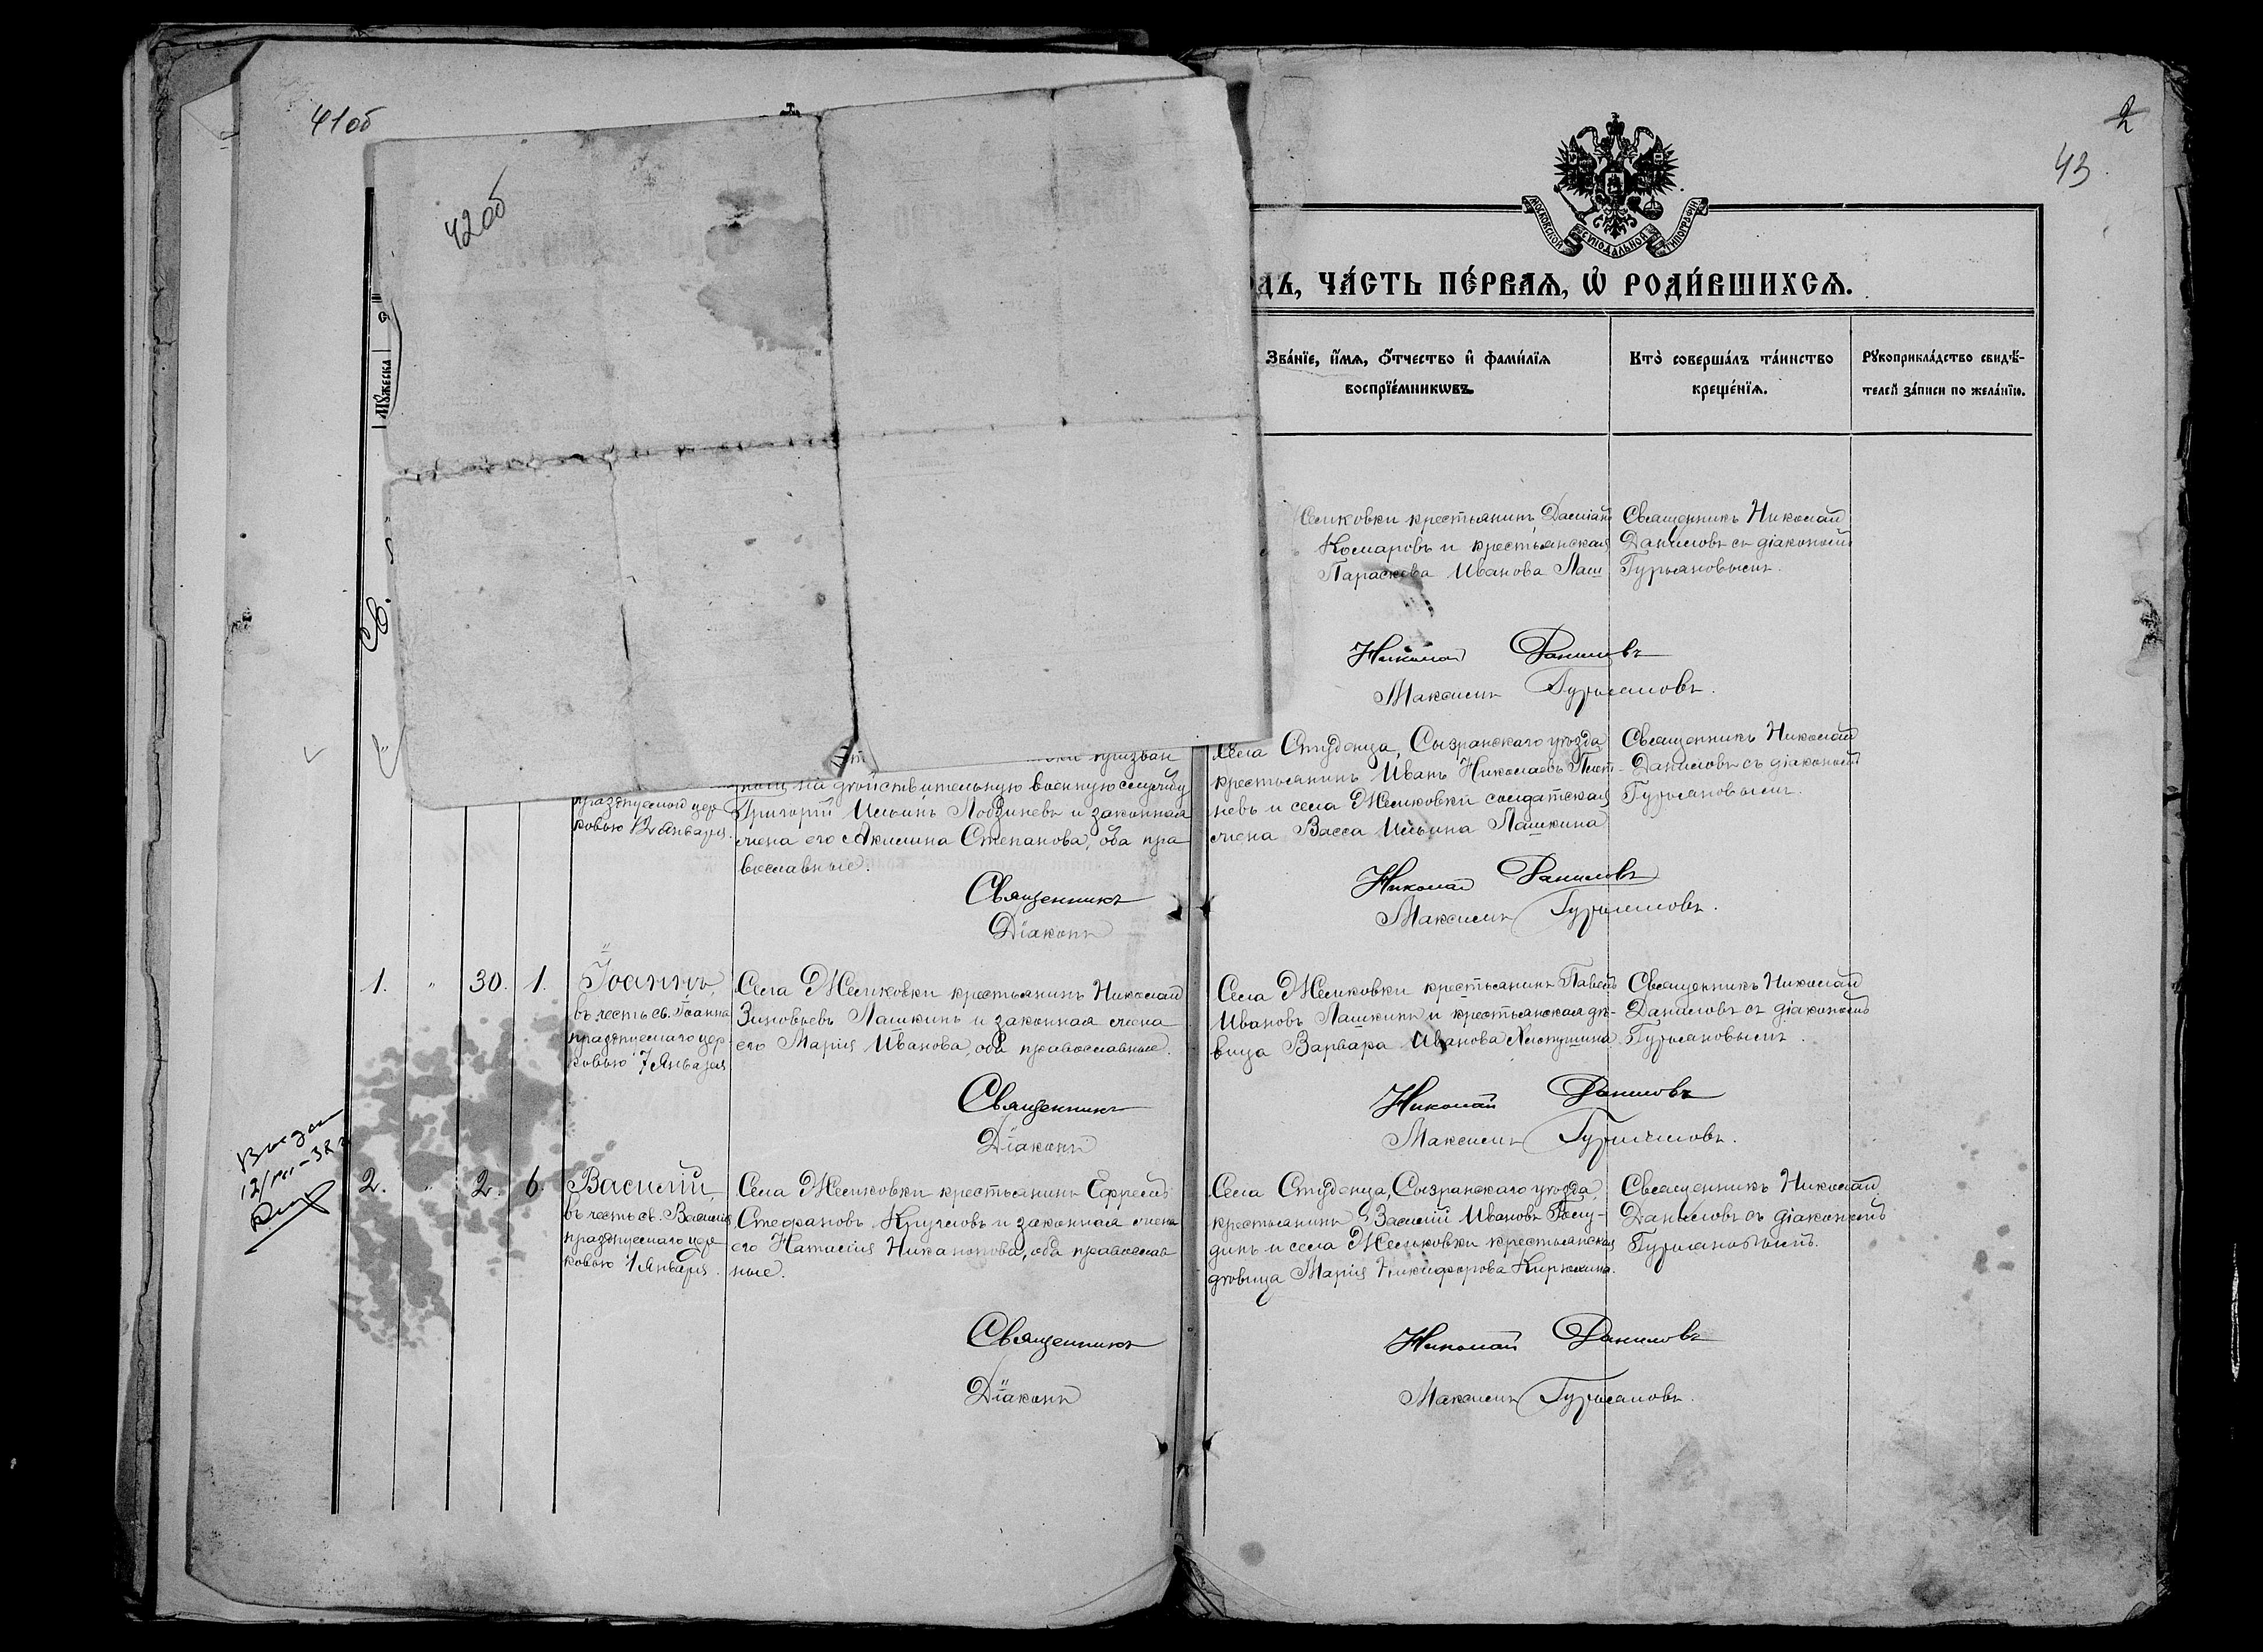 41об
42об
2
43
МОСКОВСКОЙ СѴНОДАЛЬНОЙ ТИПОГРАФІИ
ЧА́СТЬ ПЕ́РВАЯ, Ѡ҆ РОДИ́ВШИХСЯ.
Мꙋжеска
Зва́нїе, и҆́мя, ѻ҆́тчество и҆ фами́лїя
воспрїе́мникѡвъ.
Кто̀ соверша́лъ та́инство
креще́нїя.
Рꙋкоприкла́дство свидѣ́-
телей за́писи по жела́нїю.
крестьянинъ Даміанъ
Комаровъ и крестьянская
Параскева Иванова Лаш
Священникъ Николай
Даниловъ съ діакономъ
Гурьяновымъ.
Николай Даниловъ
Максимъ Гурьяновъ.
св.
призван
ный на дѣйствительную военную службу
Григорій Ильинъ Лобзиневъ и законная
жена его Акилина Степанова, оба пра
вославные.
празднуемой цер
ковью 12 Января.
Села Студенца, Сызранскаго уѣзда
крестьянинъ Иванъ Николаевъ
невъ и села Жемковки солдатская
жена Васса Ильина Лашкина
Священникъ Николай
Даниловъ съ діакономъ
Гурьяновымъ.
Священникъ
Николай Даниловъ
Діаконъ
Максимъ Гурьяновъ.
1. " 30. 1.
Іоаннъ,
въ честь св. Іоанна
празднуемаго цер
ковью 7 Января
Села Жемковки крестьянинъ Николай
Зиновьевъ Лашкинъ и законная жена
его Марія Иванова, оба православные.
Села Жемковки крестьянинъ Павелъ
Ивановъ Лашкинъ и крестьянская дѣ-
вица Варвара Иванова Хлопушина
Священникъ Николай
Даниловъ съ діакономъ
Гурьяновымъ.
Священникъ
Николай Даниловъ
Діаконъ
Максимъ Гурьяновъ.
2. " 2. 6.
Василій,
въ честь св. Василія
празднуемаго цер
ковью 1 Января.
Села Жемковки крестьянинъ Ефремъ
Стефановъ Кругловъ и законная жена
его Наталія Никанорова, оба православ
ные.
Села Студенца, Сызранскаго уѣзда
крестьянинъ Василій Ивановъ
динъ и села Жемковки крестьянская
дѣвица Марія Никифорова Кирюхина.
Священникъ Николай
Даниловъ съ діакономъ
Гурьяновымъ.
Священникъ
Николай Даниловъ
Діаконъ
Максимъ Гурьяновъ.